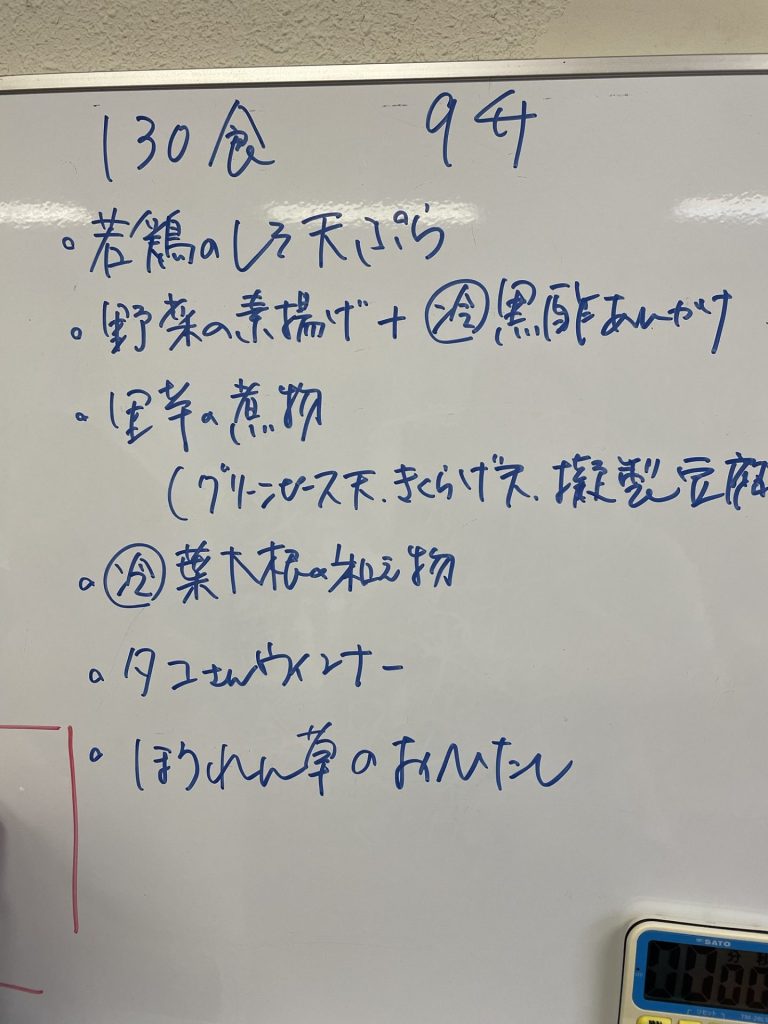 130食 9升
・若鶏のしそ天ぷら
・野菜の素揚げ+㋹黒酢あんかけ
・里芋の煮物
(グリーンピース天、きくらげ天、擬製豆腐
・㊀葉大根の和え物
・タコさんウインナー
・ほうれん草のおひたし
SATO
分 秒
リセット